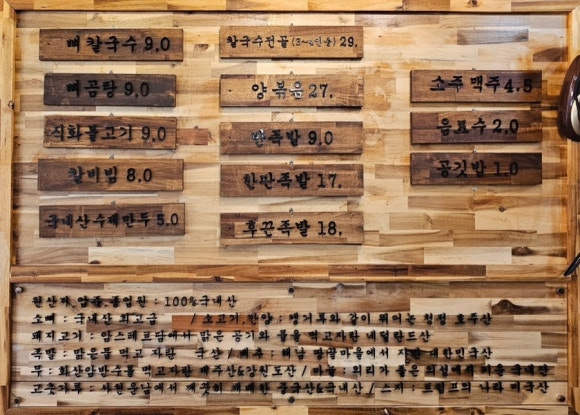 뼈칼국수 9.0
뼈곰탕 9.0
직화불고기 9.0
칼비빔 8.0
국내산수제만두 5.0
칼국수전골 29.
양볶음 27.
반족발 9.0
한판족발 17.
후끈족발 18.
소주 맥주 4.5
음료수 2.0
공깃밥 1.0
원산지, 쌀, 종업원 : 100%국내산
소뼈 : 국내산 최고급 / 소고기, 깐양 : 캥거루와 같이 뛰어논 청정 호주산
돼지고기 : 암스테르담에서 맑은 공기와 풀을 먹고자란 네덜란드산
족발 : 맑은물 먹고 자란 국산 / 배추 : 해남 땅끝마을에서 자란 대한민국산
무 : 화산암반수를 먹고자란 제주산&강원도산 / 마늘 : 의리가 좋은 의성에서 키운 국내산
고춧가루 : 사천운남에서 깨끗이 재배한 중국산&국내산 / 스지 : 트럼프의 나라 미국산